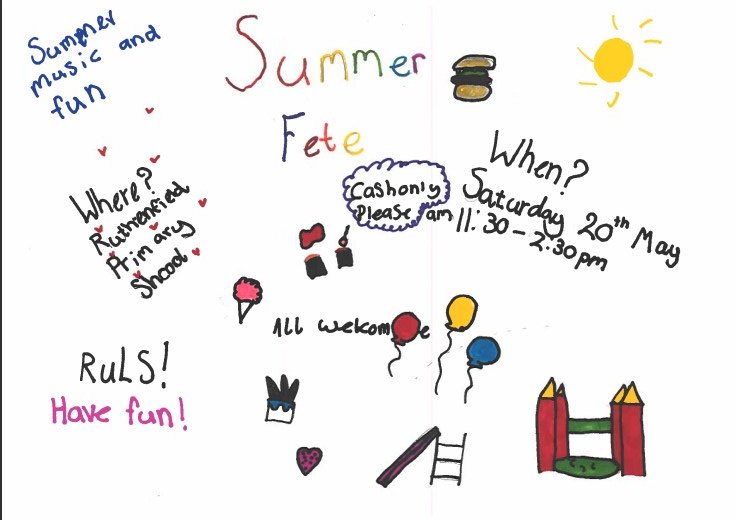 Summer
music and
fun
Summer
Fete
Where?
Ruthrenfied
Primary
Shcool
Cashonly
Please
When?
Saturday 20th May
am 11:30 - 2:30pm
All welcome
RuLS!
Have fun!